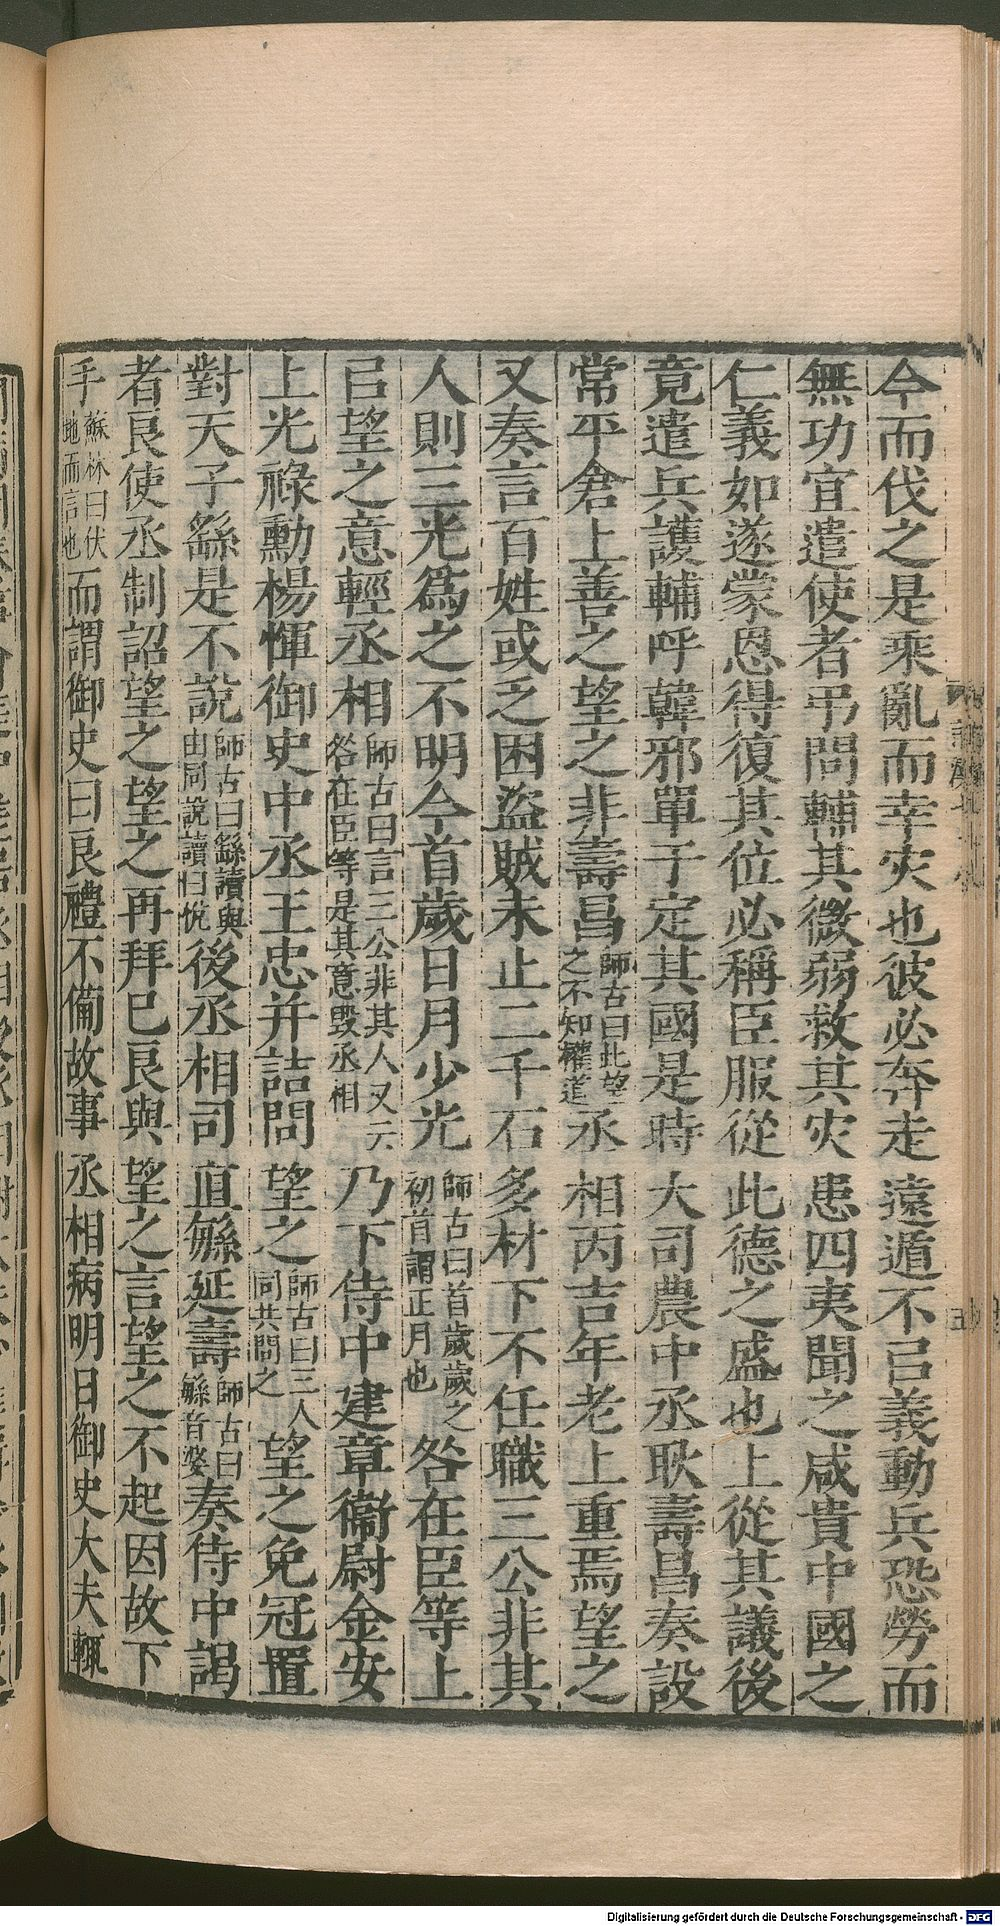 今而伐之是乘亂而幸灾也彼必奔走遠遁不㠯義動兵恐勞而
無功宜遣使者弔問輔其微弱救其灾患四夷聞之咸貴中國之
仁義如遂蒙恩得復其位必稱臣服從此德之盛也上從其議後
竟遣兵護輔呼韓邪單于定其國是時大司農中丞耿壽昌奏設
常平倉上善之望之非壽昌師古曰此望之不知權道丞相丙吉年老上重焉望之
又奏言百姓或乏困盜賊未止二千石多材下不任職三公非其
人則三光爲之不明今首歲日月少光師古曰首歲歲之初首謂正月也咎在臣等上
㠯望之意輕丞相師古曰言三公非其人又云咎在臣等是其意毀丞相乃下侍中建章衞尉金安
上光祿勳楊惲御史中丞王忠并詰問望之師古曰三人同共問之望之免冠置
對天子繇是不說師古曰繇讀與由同說讀曰悅後丞相司直䋣延壽師古曰䋣音婆奏侍中謁
者良使丞制詔望之望之再拜已良與望之言望之不起因故下
手蘇林曰伏地而言也而謂御史曰良禮不備故事丞相病明日御史大夫輒
Digitalisierung gefördert durch die Deutsche Forschungsgemeinschaft - DFG